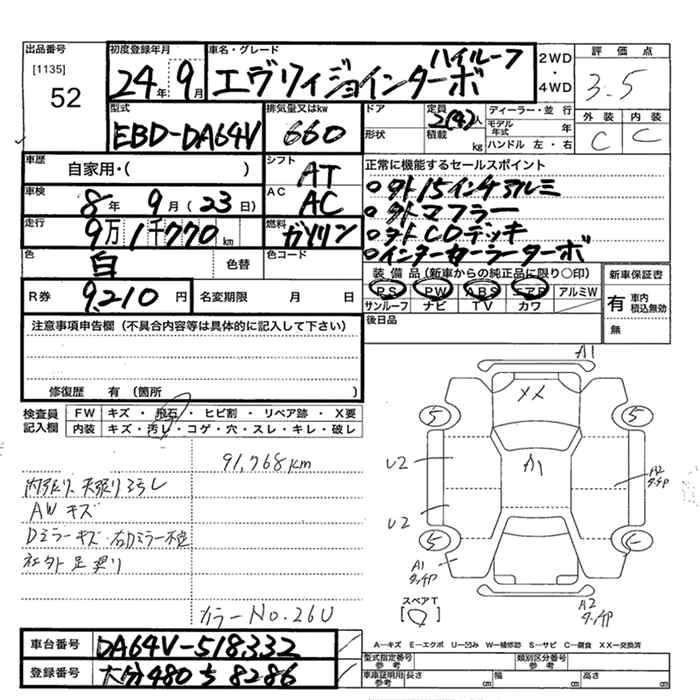 出品番号
[1135]
52
初度登録年月
24年9月
車名・グレード
ハイルーフ
エヴリイジョインターボ
2WD
・
4WD
評価点
3.5
外装 内装
C C
型式
EBD-DA64V
排気量又はkw
660
ドア
形状
定員
2(4)人
積載 kg
ディーラー・並行
モデル年式 年
ハンドル 左・右
車歴
自家用・( )
シフト
AT
車検
8年9月(23日)
AC
AC
走行
9万1千770km
燃料
ガソリン
色
白
色替
色コード
R券 9,210円
名変期限 月 日
正常に機能するセールスポイント
○タト15インチアルミ
○タトマフラー
○タトCDデッキ
○インタークーラーターボ
装備品(新車からの純正品に限り○印)
PS PW ABS エアB アルミW
サンルーフ ナビ TV カワ
後日品
新車保証書
有 車内積込無効
無
注意事項申告欄(不具合内容等は具体的に記入して下さい)
修復歴 有(箇所 )
検査員記入欄
FW キズ・飛石・ヒビ割・リペア跡・X要
内装 キズ・汚レ・コゲ・穴・スレ・キレ・破レ
91,768km
内張り、天張りヨゴレ
AWキズ
Dミラーキズ
社外足廻り
カラーNo.26U
A1
XX
5 5
A1
U2
A2
U2
5
A1
A2
スペアT
[ ]
車台番号 DA64V-518332
登録番号 大分480ち8286
A―キズ E―エクボ U―凹み W―補修跡 S―サビ C―腐食 XX―交換済
型式指定番号 参考
類別区分番号 参考
車庫証明用 参考 長さ cm 幅 cm 高さ cm